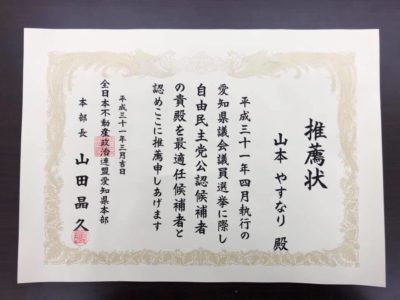 推薦状
山本 やすなり 殿
平成三十一年四月執行の
愛知県議会議員選挙に際し
自由民主党公認候補者
の貴殿を最適任候補者と
認めここに推薦申しあげます
平成三十一年三月吉日
全日本不動産政治連盟愛知県本部
本部長 山田晶久